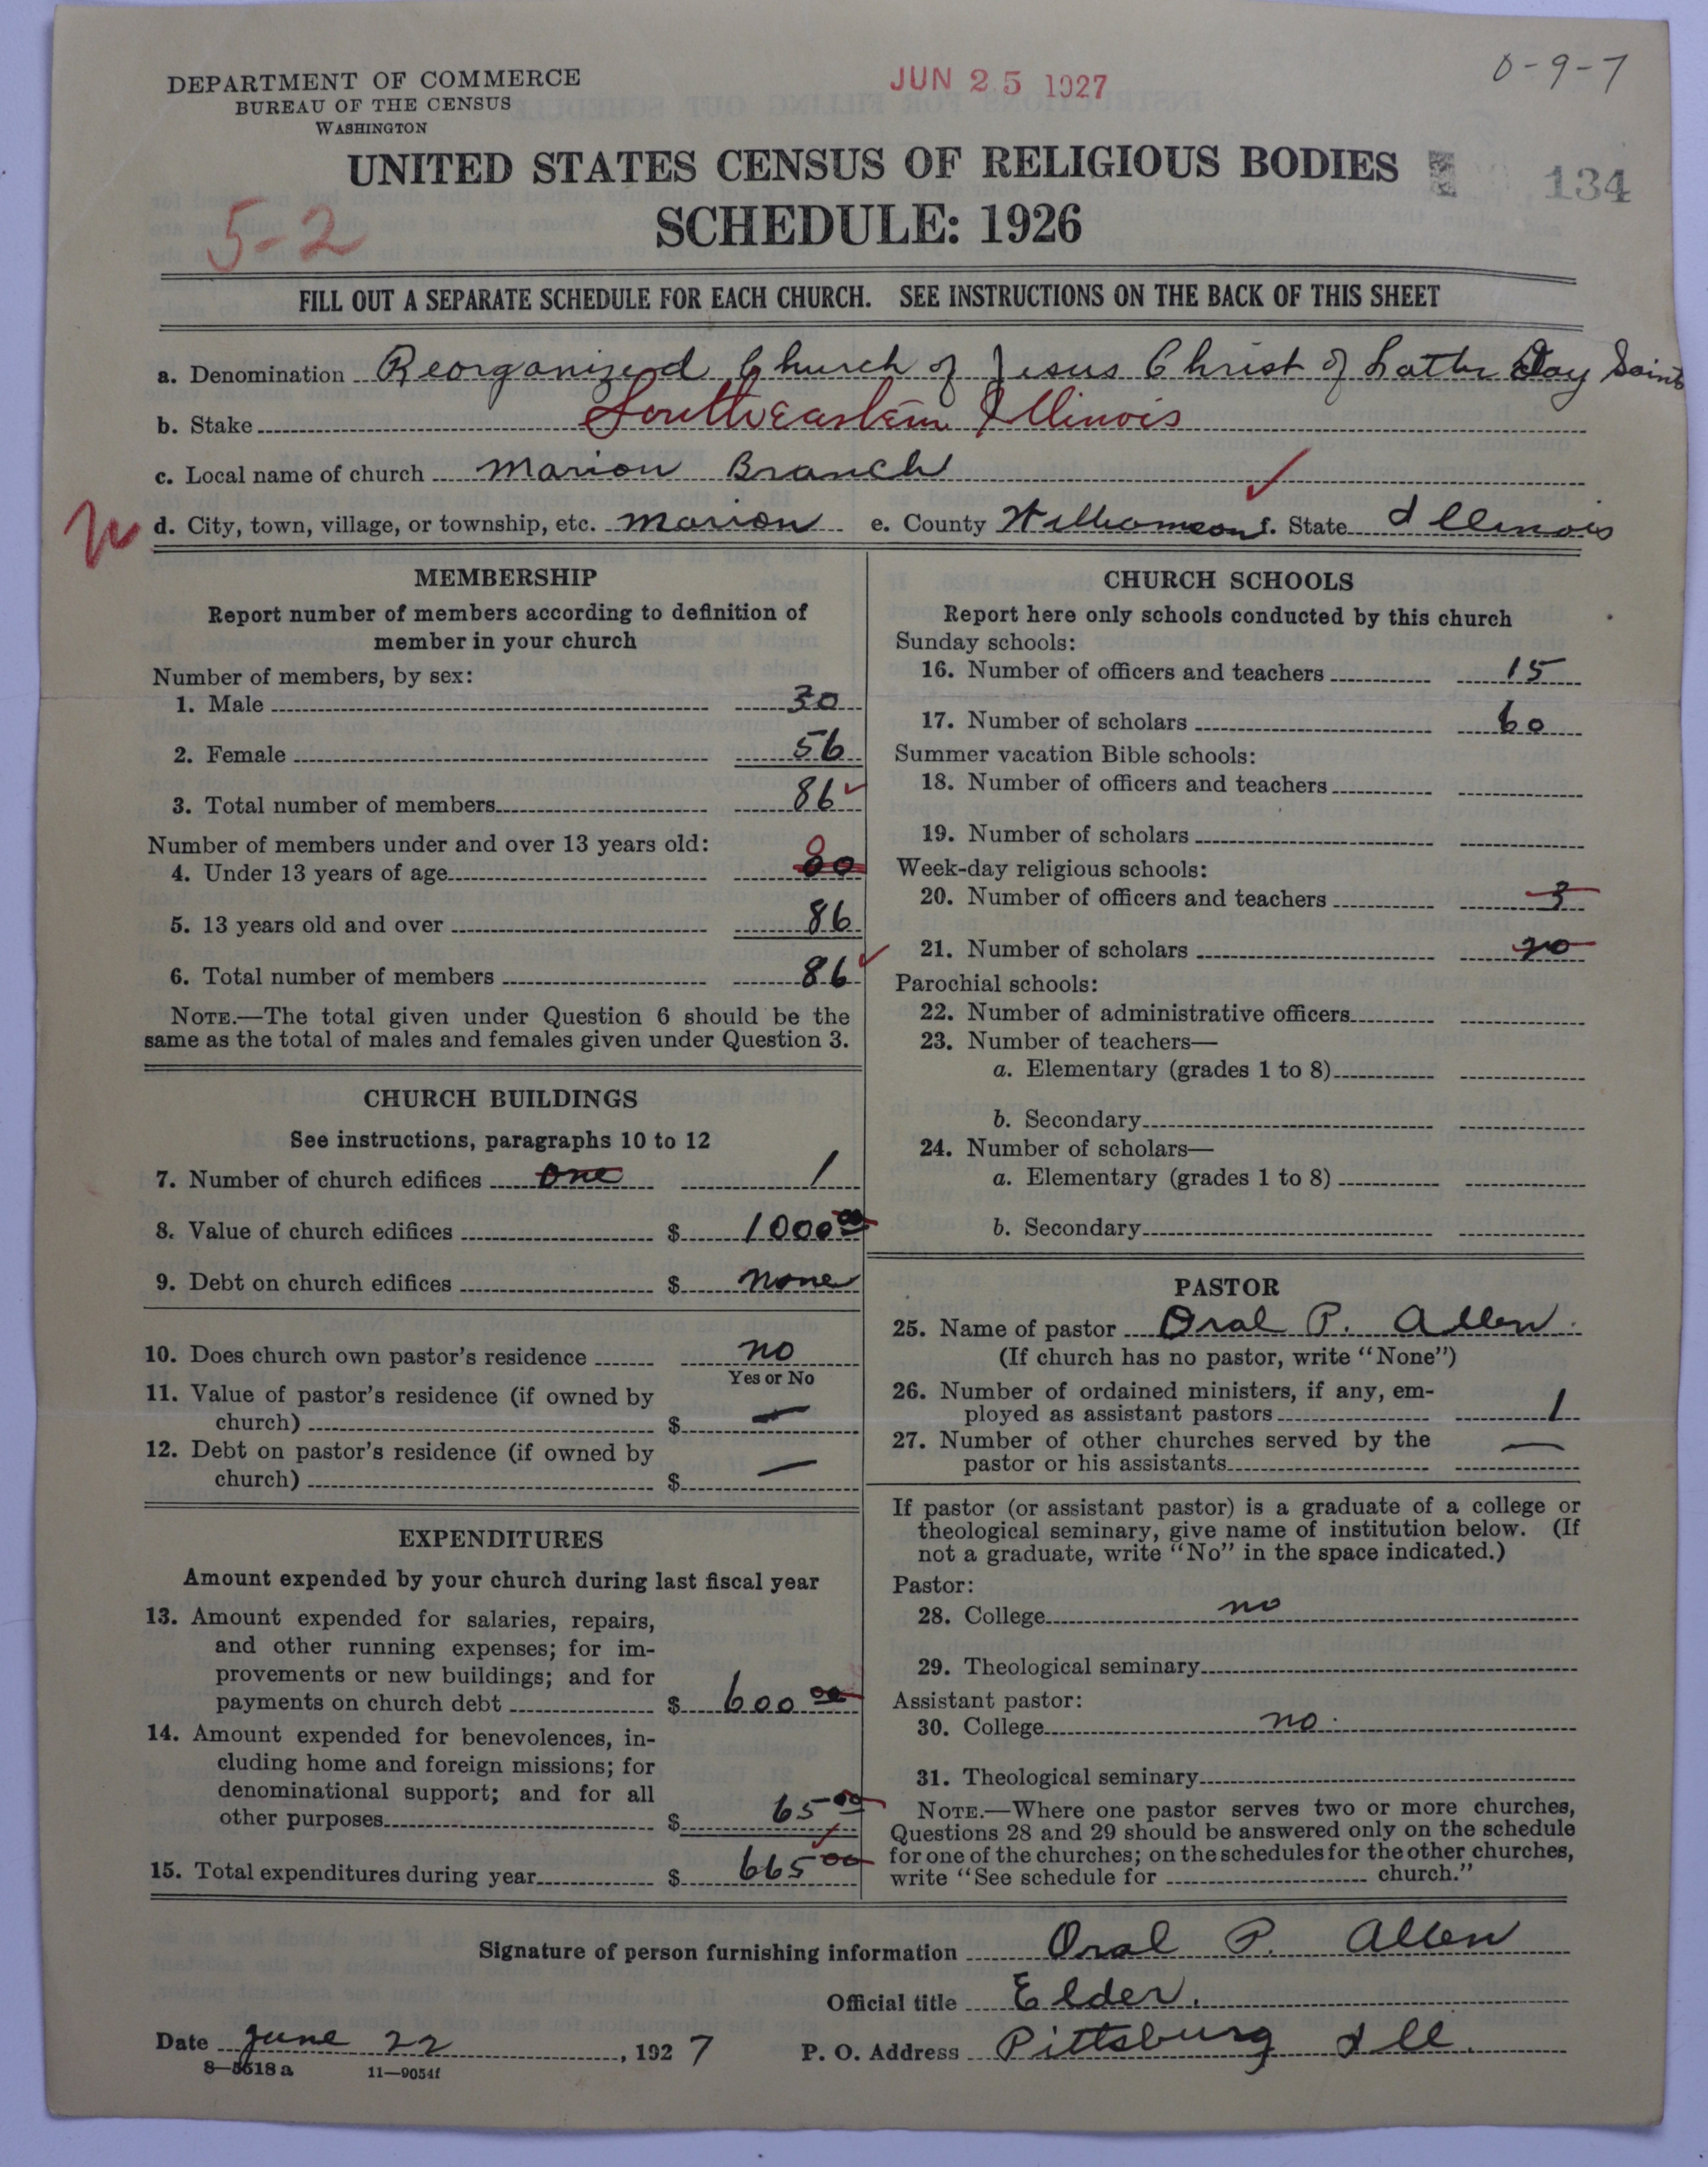 DEPARTMENT OF COMMERCE
BUREAU OF THE CENSUS
WASHINGTON
JUN 25 1927
0-9-7
UNITED STATES CENSUS OF RELIGIOUS BODIES
134
SCHEDULE: 1926
5-2
FILL OUT A SEPARATE SCHEDULE FOR EACH CHURCH. SEE INSTRUCTIONS ON THE BACK OF THIS SHEET
a. Denomination Reorganized Church of Jesus Christ of Latter Day Saints
b. Stake Southeastern Illinois
c. Local name of church Marion Branch
d. City, town, village, or township, etc. Marion e. County Williamson f. State Illinois
MEMBERSHIP
Report number of members according to definition of
member in your church
Number of members, by sex:
1. Male 30
2. Female 56
3. Total number of members 86
Number of members under and over 13 years old:
4. Under 13 years of age 00 0
5. 13 years old and over 86
6. Total number of members 86
NOTE.—The total given under Question 6 should be the
same as the total of males and females given under Question 3.
CHURCH BUILDINGS
See instructions, paragraphs 10 to 12
7. Number of church edifices one 1
8. Value of church edifices $ 1000 00
9. Debt on church edifices $ none
10. Does church own pastor's residence no
Yes or No
11. Value of pastor's residence (if owned by
church) $ —
12. Debt on pastor's residence (if owned by
church) $ —
EXPENDITURES
Amount expended by your church during last fiscal year
13. Amount expended for salaries, repairs,
and other running expenses; for im-
provements or new buildings; and for
payments on church debt $ 600 00
14. Amount expended for benevolences, in-
cluding home and foreign missions; for
denominational support; and for all
other purposes $ 65 00
15. Total expenditures during year $ 665 00
CHURCH SCHOOLS
Report here only schools conducted by this church
Sunday schools:
16. Number of officers and teachers 15
17. Number of scholars 60
Summer vacation Bible schools:
18. Number of officers and teachers
19. Number of scholars
Week-day religious schools:
20. Number of officers and teachers 3
21. Number of scholars no
Parochial schools:
22. Number of administrative officers
23. Number of teachers—
a. Elementary (grades 1 to 8)
b. Secondary
24. Number of scholars—
a. Elementary (grades 1 to 8)
b. Secondary
PASTOR
25. Name of pastor Oral P. Allen.
(If church has no pastor, write "None")
26. Number of ordained ministers, if any, em-
ployed as assistant pastors 1
27. Number of other churches served by the
pastor or his assistants —
If pastor (or assistant pastor) is a graduate of a college or
theological seminary, give name of institution below. (If
not a graduate, write "No" in the space indicated.)
Pastor:
28. College no
29. Theological seminary
Assistant pastor:
30. College no.
31. Theological seminary
NOTE.—Where one pastor serves two or more churches,
Questions 28 and 29 should be answered only on the schedule
for one of the churches; on the schedules for the other churches,
write "See schedule for church."
Signature of person furnishing information Oral P. Allen
Official title Elder.
Date June 22, 1927 P. O. Address Pittsburg Ill.
8—5618 a 11—9054f